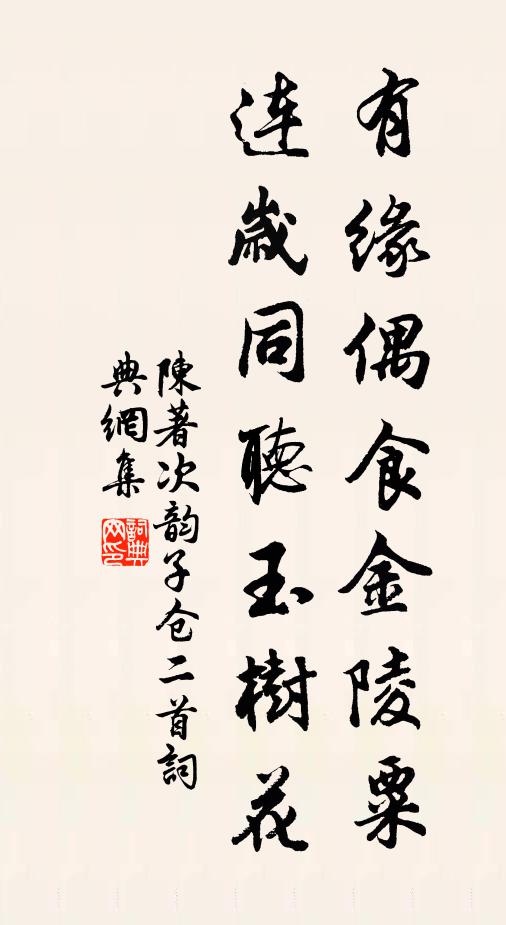 有缘偶食金陵粟
连岁同聽玉樹花
陳著次韵子仓二首詞
典網集
詞典网印